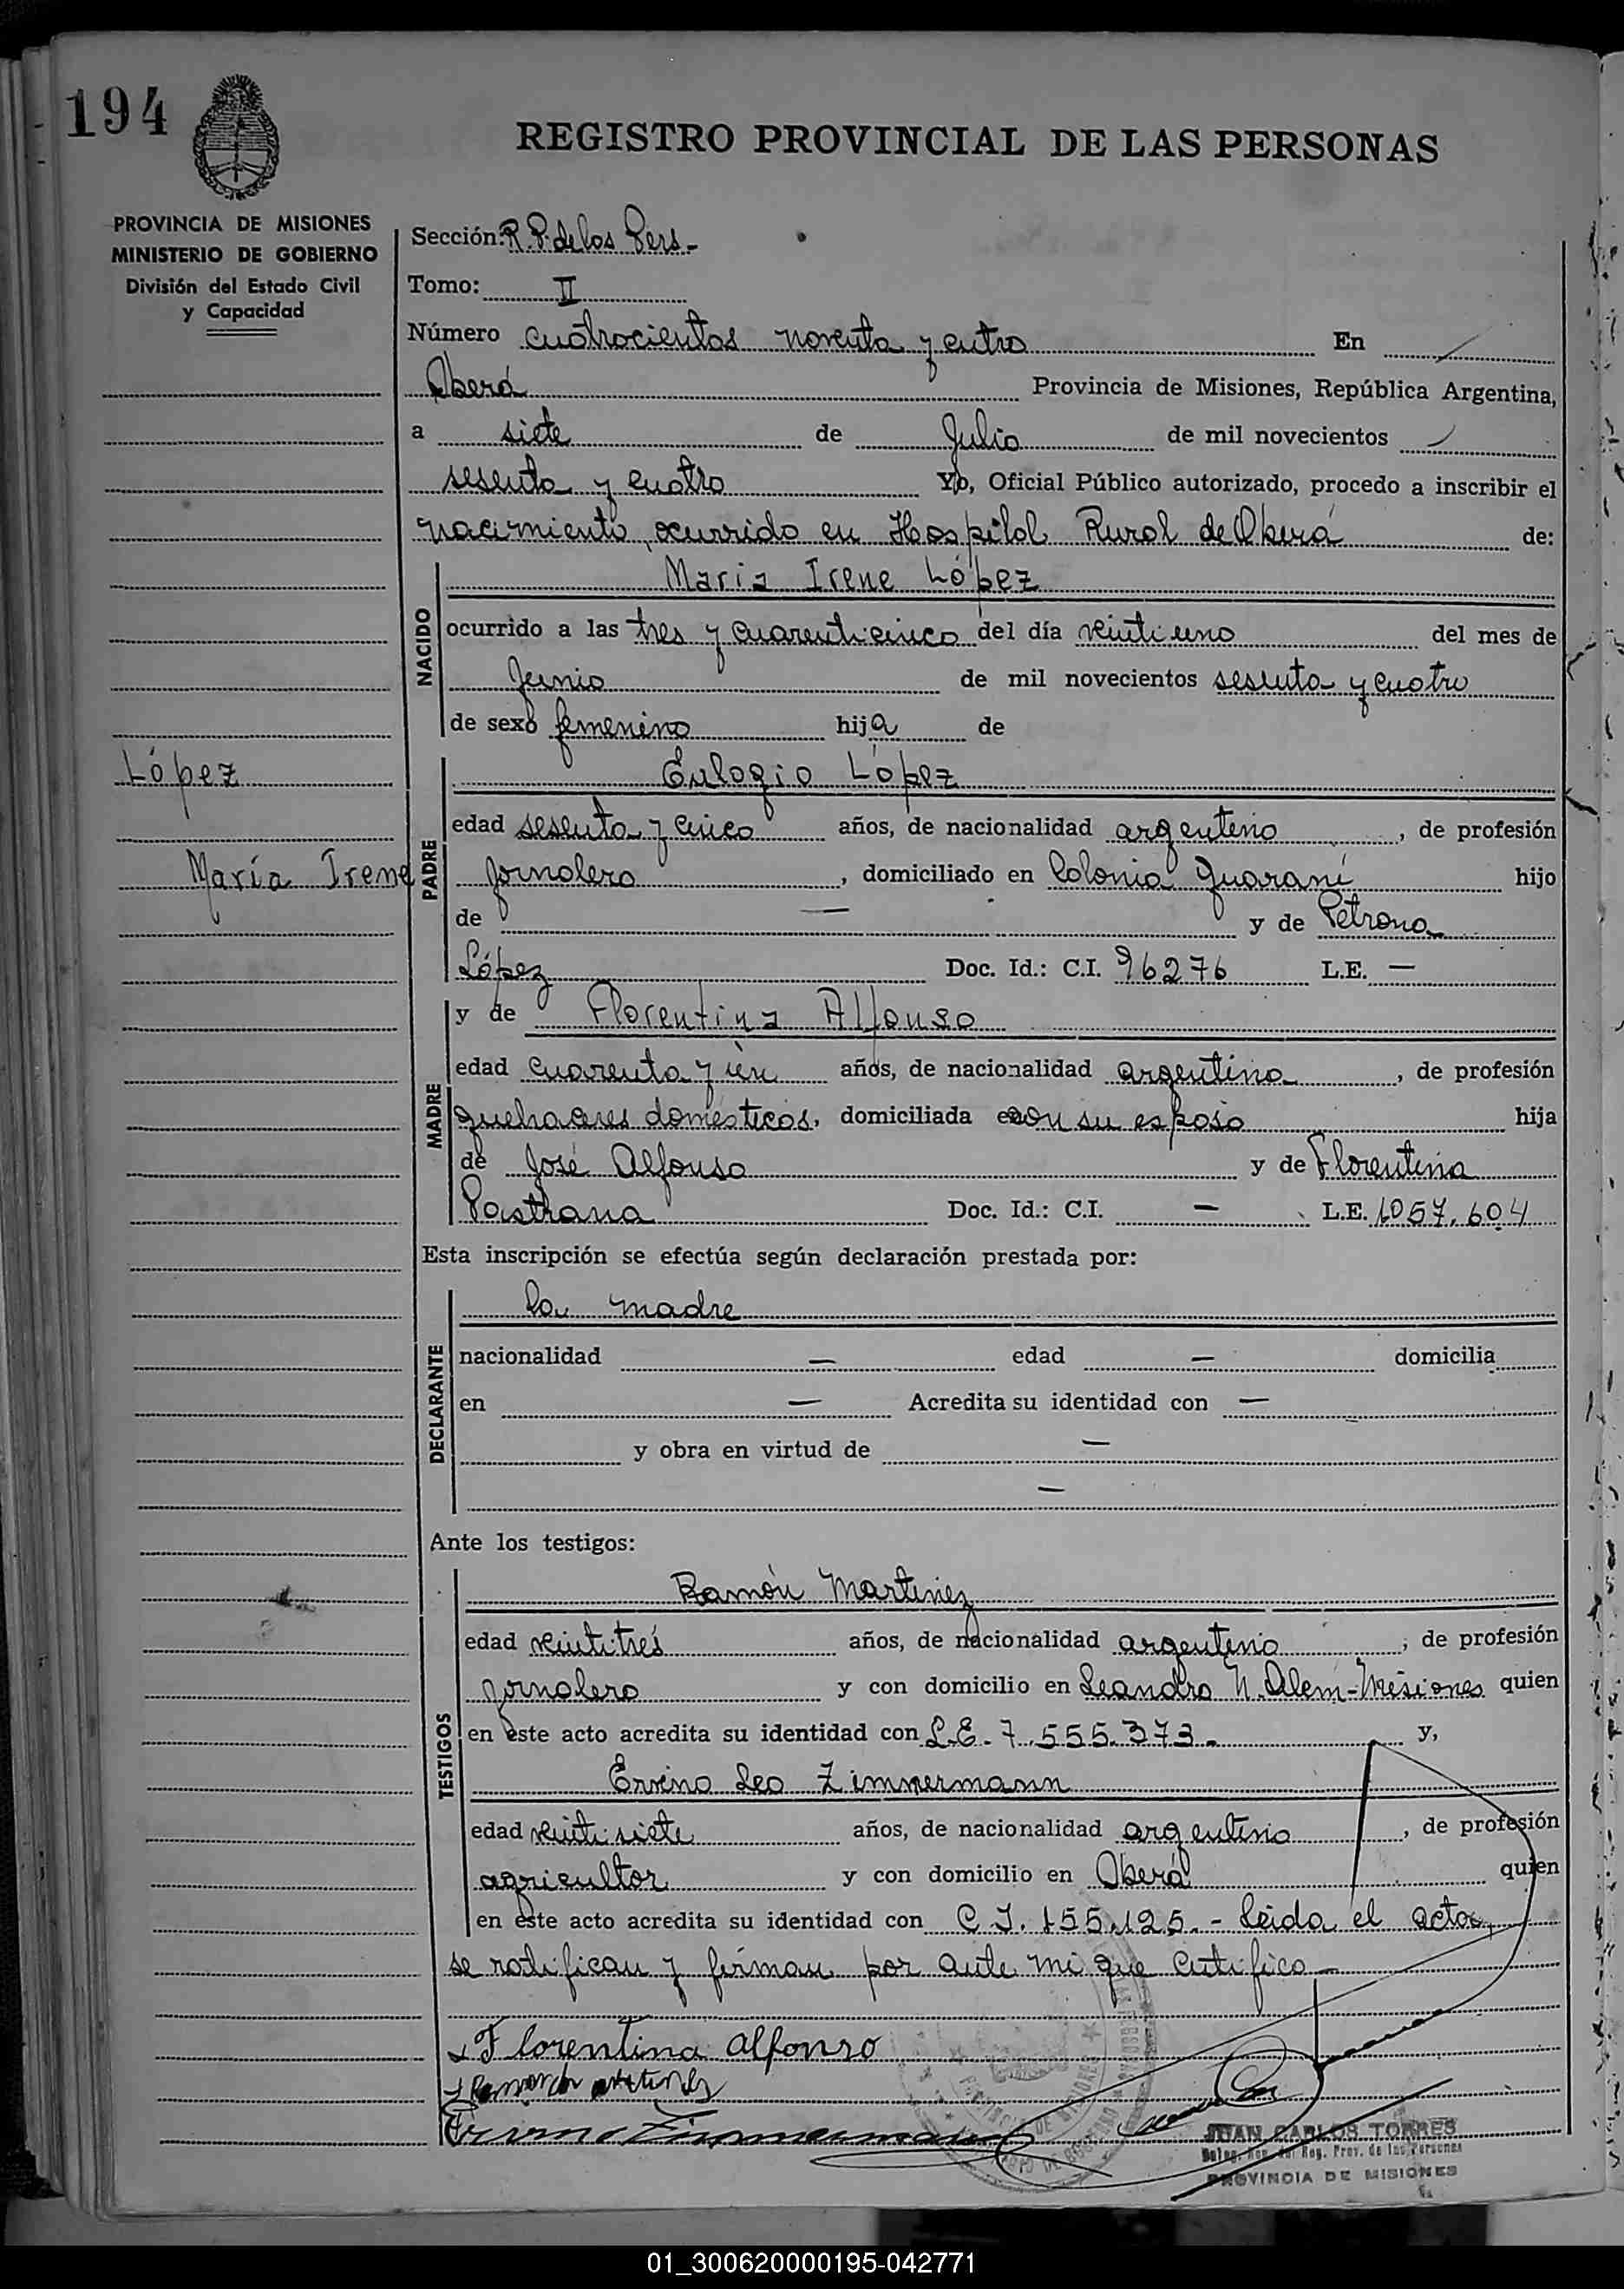 194
REGISTRO PROVINCIAL DE LAS PERSONAS
PROVINCIA DE MISIONES
MINISTERIO DE GOBIERNO
División del Estado Civil
y Capacidad
Sección: R. P. de los Pers-
Tomo: II
Número cuatrocientos noventa y cutro En
Oberá Provincia de Misiones, República Argentina,
a siete de Julio de mil novecientos
sesenta y cuatro Yo, Oficial Público autorizado, procedo a inscribir el
nacimiento, ocurrido en Hospital Rural de Oberá de:
NACIDO
Maria Irene López
ocurrido a las tres y cuarenticinco del día veintiuno del mes de
Junio de mil novecientos sesenta y cuatro
de sexo femenino hija de
López
María Irene
PADRE
Eulogio López
edad sesenta y cinco años, de nacionalidad argentino, de profesión
Jornalero, domiciliado en Colonia Guaraní hijo
de — y de Petrona
López Doc. Id.: C.I. 96276 L.E. —
MADRE
y de Florentina Alfonso
edad cuarenta y un años, de nacionalidad argentina, de profesión
quehaceres domésticos, domiciliada con su esposo hija
de José Alfonso y de Florentina
Pastrana Doc. Id.: C.I. — L.E. 1057.604
Esta inscripción se efectúa según declaración prestada por:
DECLARANTE
la madre
nacionalidad — edad — domicilia
en — Acredita su identidad con —
y obra en virtud de —
—
Ante los testigos:
TESTIGOS
Ramón Martinez
edad veintitrés años, de nacionalidad argentino, de profesión
jornalero y con domicilio en Leandro N. Alem-Misiones quien
en este acto acredita su identidad con L.E. 7.555.373.- y,
Ervino Leo Zimmermann
edad veintisiete años, de nacionalidad argentino, de profesión
agricultor y con domicilio en Oberá quien
en este acto acredita su identidad con C.I. 155.125.- Leida el acta,
se ratifican y firman por ante mi que certifico
Florentina Alfonso
Ervino Zimmermann
JUAN CARLOS TORRES
Reg. Prov. de las Personas
PROVINCIA DE MISIONES
01_300620000195-042771